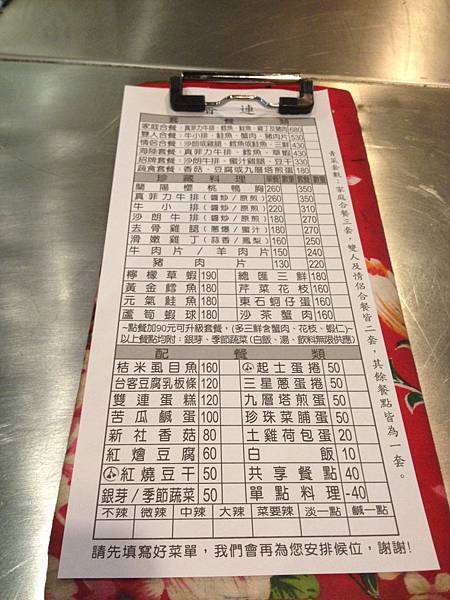 連
套餐類
家庭合餐:真菲力牛排、鱈魚、鮭魚、雞丁及豬肉680
雙人合餐:牛小排、鮭魚、蟹肉、豬肉片530
情侶合餐:沙朗或雞腿、鱈魚或鮭魚、三鮮430
海陸套餐:真菲力牛排、鱈魚、草蝦430
招牌套餐:沙朗牛排、蜜汁雞腿、豆干330
蔬食套餐:香菇、豆腐或九層塔煎蛋180
珍藏料理 單餐 數量 套餐 數量
蘭陽櫻桃鴨胸 260 350
真菲力牛排(醬炒/原煎) 260 350
牛小排(醬炒/原煎) 220 310
沙朗牛排(醬炒/原煎) 190 280
去骨雞腿(蔥爆/蜜汁) 190 280
滑嫩雞丁(蒜香/鳳梨) 160 250
牛肉片/羊肉片 150 240
豬肉片 130 220
檸檬草蝦 190 總匯三鮮 180
黃金鱈魚 180 芹菜花枝 160
元氣鮭魚 180 東石蚵仔蛋 160
蘆筍蝦球 180 沙茶蟹肉 160
~點餐加90元可升級套餐,(多三鮮含蟹肉、花枝、蝦仁)~
以上餐點均附:銀芽、季節蔬菜(白飯、湯、飲料無限供應)
配餐類
桔米虱目魚 160 起士蛋捲 50
台客豆腐乳板條 120 三星蔥蛋捲 50
雙連蛋糕 120 九層塔煎蛋 50
苦瓜鹹蛋 100 珍珠菜脯蛋 50
新社香菇 80 土雞荷包蛋 20
紅燴豆腐 60 白飯 10
紅燒豆干 50 共享餐點 40
銀芽/季節蔬菜 50 單點料理 -40
不辣 微辣 中辣 大辣 菜要辣 淡一點 鹹一點
請先填寫好菜單,我們會再為您安排候位,謝謝!
青菜套數,家庭合餐三套,雙人及情侶合餐皆二套,其餘餐點皆為一套。